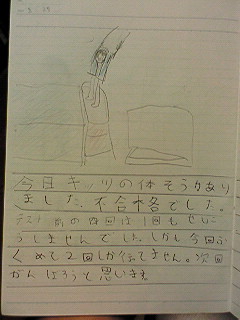 今日キノツの体そうがあり
ました。不合十各でした。
テスト前の四回は1回もせいこ
うしませんでした。しかし今回ふ
くめて2回しか行てません。次回
がんばろうと思います